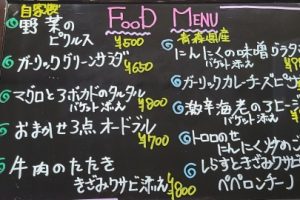 FOOD MENU
自家製
野菜の
ピクルス
¥500
ガーリックグリーンサラダ
¥650
マグロとアボカドのタルタル
バゲット添え
¥800
おまかせ3点オードブル
¥700
牛肉のたたき
きざみワサビ添え
¥800
青森県産
にんにくの味噌グラタン
バゲット添え
ガーリックカレーチーズピザ
激辛海老の
トロロのせ
にんにく
しらすときざみワサビ
ペペロンチーノ